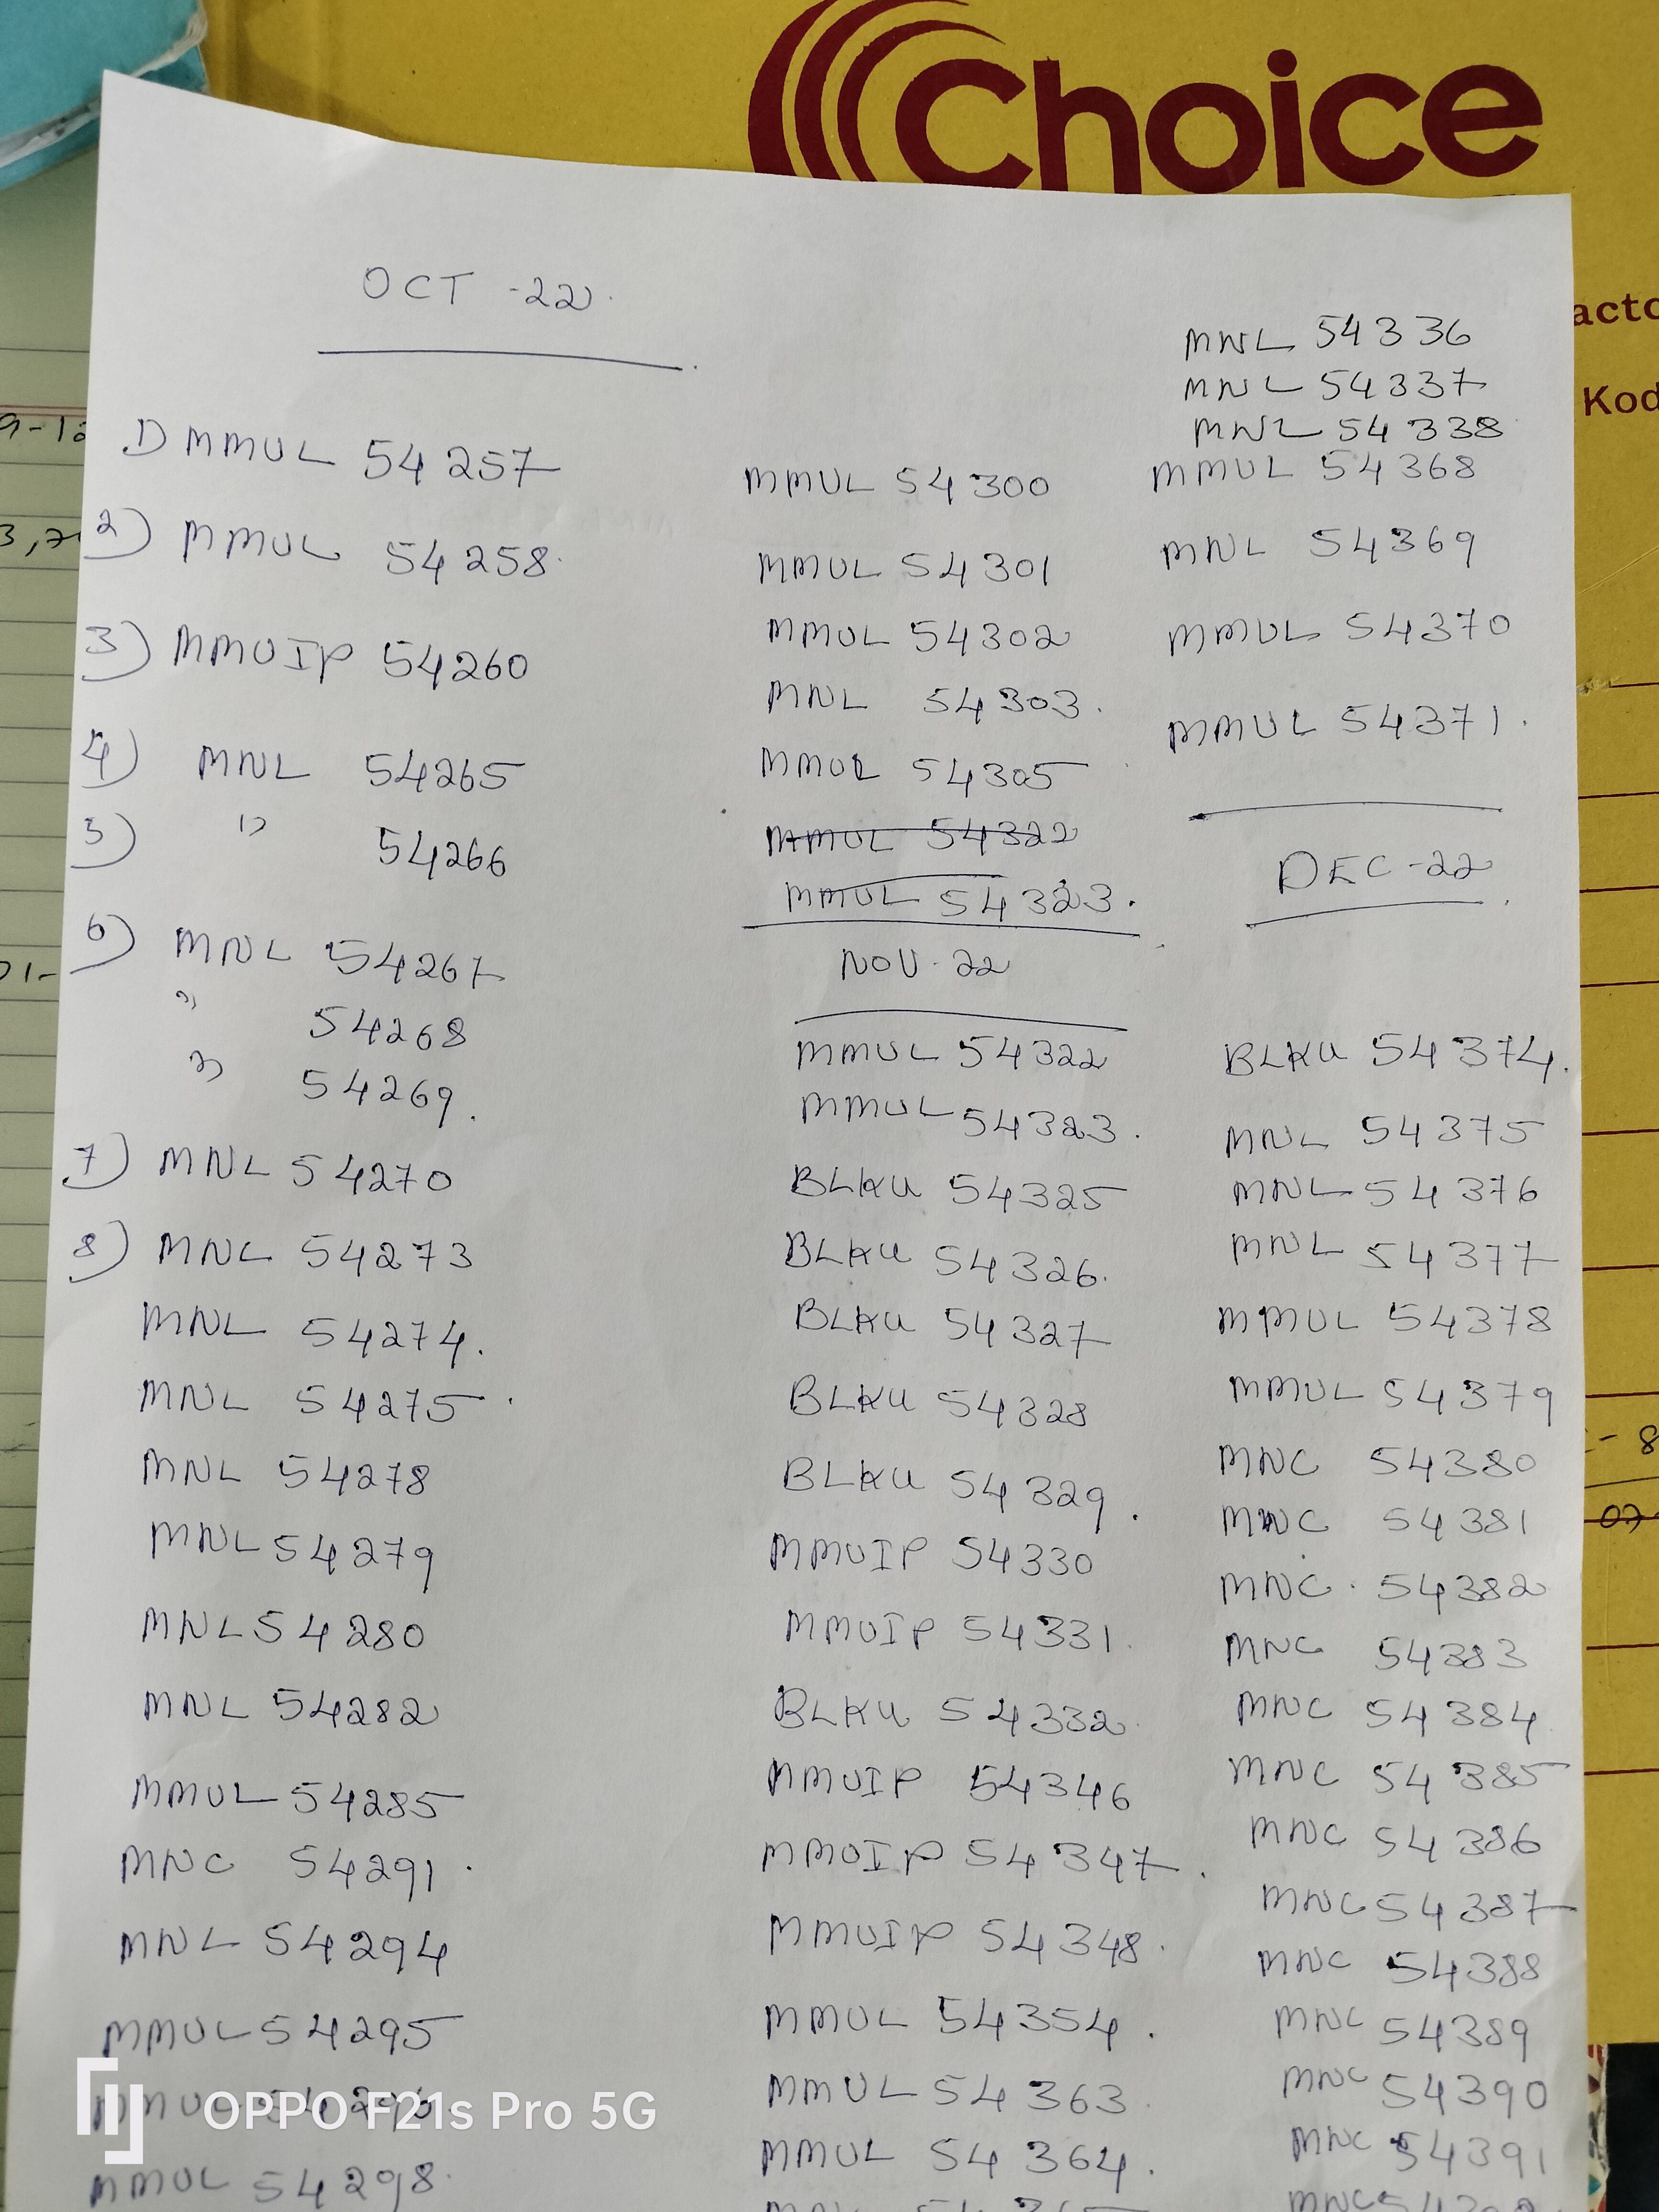 Choice
acto
Kod
OCT -22.
1) MMUL 54257
2) MMUL 54258.
3) MMUIP 54260
4) MNL 54265
5) " 54266
6) MNL 54267
" 54268
" 54269.
7) MNL 54270
8) MNC 54273
MNL 54274.
MNL 54275.
MNL 54278
MNL 54279
MNL 54280
MNL 54282
MMUL 54285
MNC 54291.
MNL 54294
MMUL 54295
MMUL 54298.
MMUL 54300
MMUL 54301
MMUL 54302
MNL 54303.
MMUL 54305
MMUL 54322
MMUL 54323.
NOV-22
MMUL 54322
MMUL 54323.
BLKU 54325
BLKU 54326.
BLKU 54327
BLKU 54328
BLKU 54329.
MMUIP 54330
MMUIP 54331.
BLKU 54332.
MMUIP 54346
MMUIP 54347.
MMUIP 54348.
MMUL 54354.
MMUL 54363
MMUL 54364.
MNL 54336
MNL 54337
MNL 54338
MMUL 54368
MNL 54369
MMUL 54370
MMUL 54371.
DEC-22.
BLKU 54374.
MNL 54375
MNL 54376
MNL 54377
MMUL 54378
MMUL 54379
MNC 54380
MNC 54381
MNC. 54382
MNC 54383
MNC 54384
MNC 54385
MNC 54386
MNC 54387
MNC 54388
MNC 54389
MNC 54390
MNC 54391
OPPO F21s Pro 5G